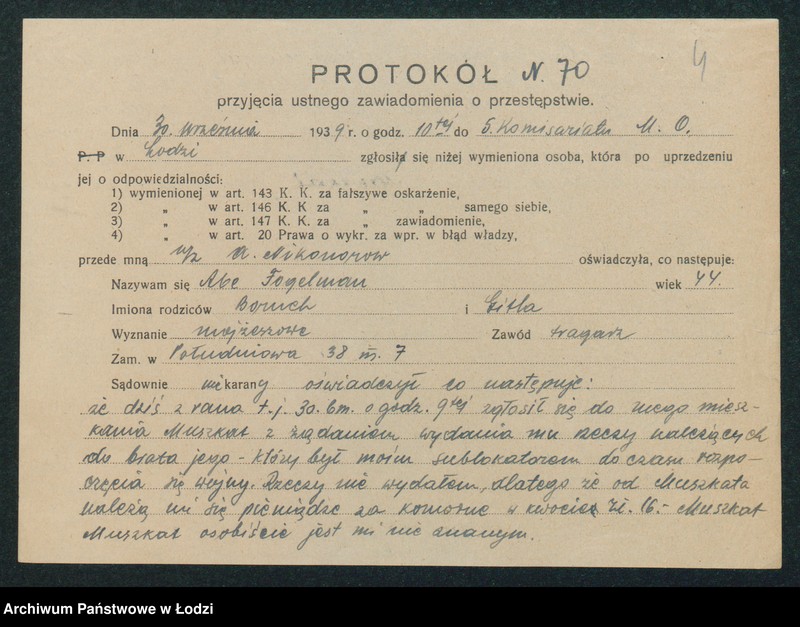 4
PROTOKÓŁ N. 70
przyjęcia ustnego zawiadomienia o przestępstwie.
Dnia 30. września 1939 r. o godz. 10 tej do 5. Komisariatu M. O.
P. P w Łodzi zgłosił się niżej wymieniona osoba, która po uprzedzeniu
jej o odpowiedzialności:
1) wymienionej w art. 143 K. K. za fałszywe oskarżenie,
2) „ w art. 146 K. K za „ „ samego siebie,
3) „ w art. 147 K. K. za „ zawiadomienie,
4) „ w art. 20 Prawa o wykr. za wpr. w błąd władzy,
przede mną A. Nikonorow oświadczyła, co następuje:
Nazywam się Abe Fogelman wiek 44.
Imiona rodziców Boruch i Gitla
Wyznanie mojżeszowe Zawód tragarz
Zam. w Południowa 38 m. 7
Sądownie niekarany oświadczył co następuje:
że dziś z rana t. j. 30. bm. o godz. 9 tej zgłosił się do mego miesz-
kania Muszkat z żądaniem wydania mu rzeczy należących
do brata jego - który był moim sublokatorem do czasu rozpo-
częcia się wojny. Rzeczy nie wydałem, dlatego że od Muszkata
należą mi się pieniądze za komorne w kwocie zł. 16.- Muszkat
Muszkat osobiście jest mi nie znanym.
Archiwum Państwowe w Łodzi